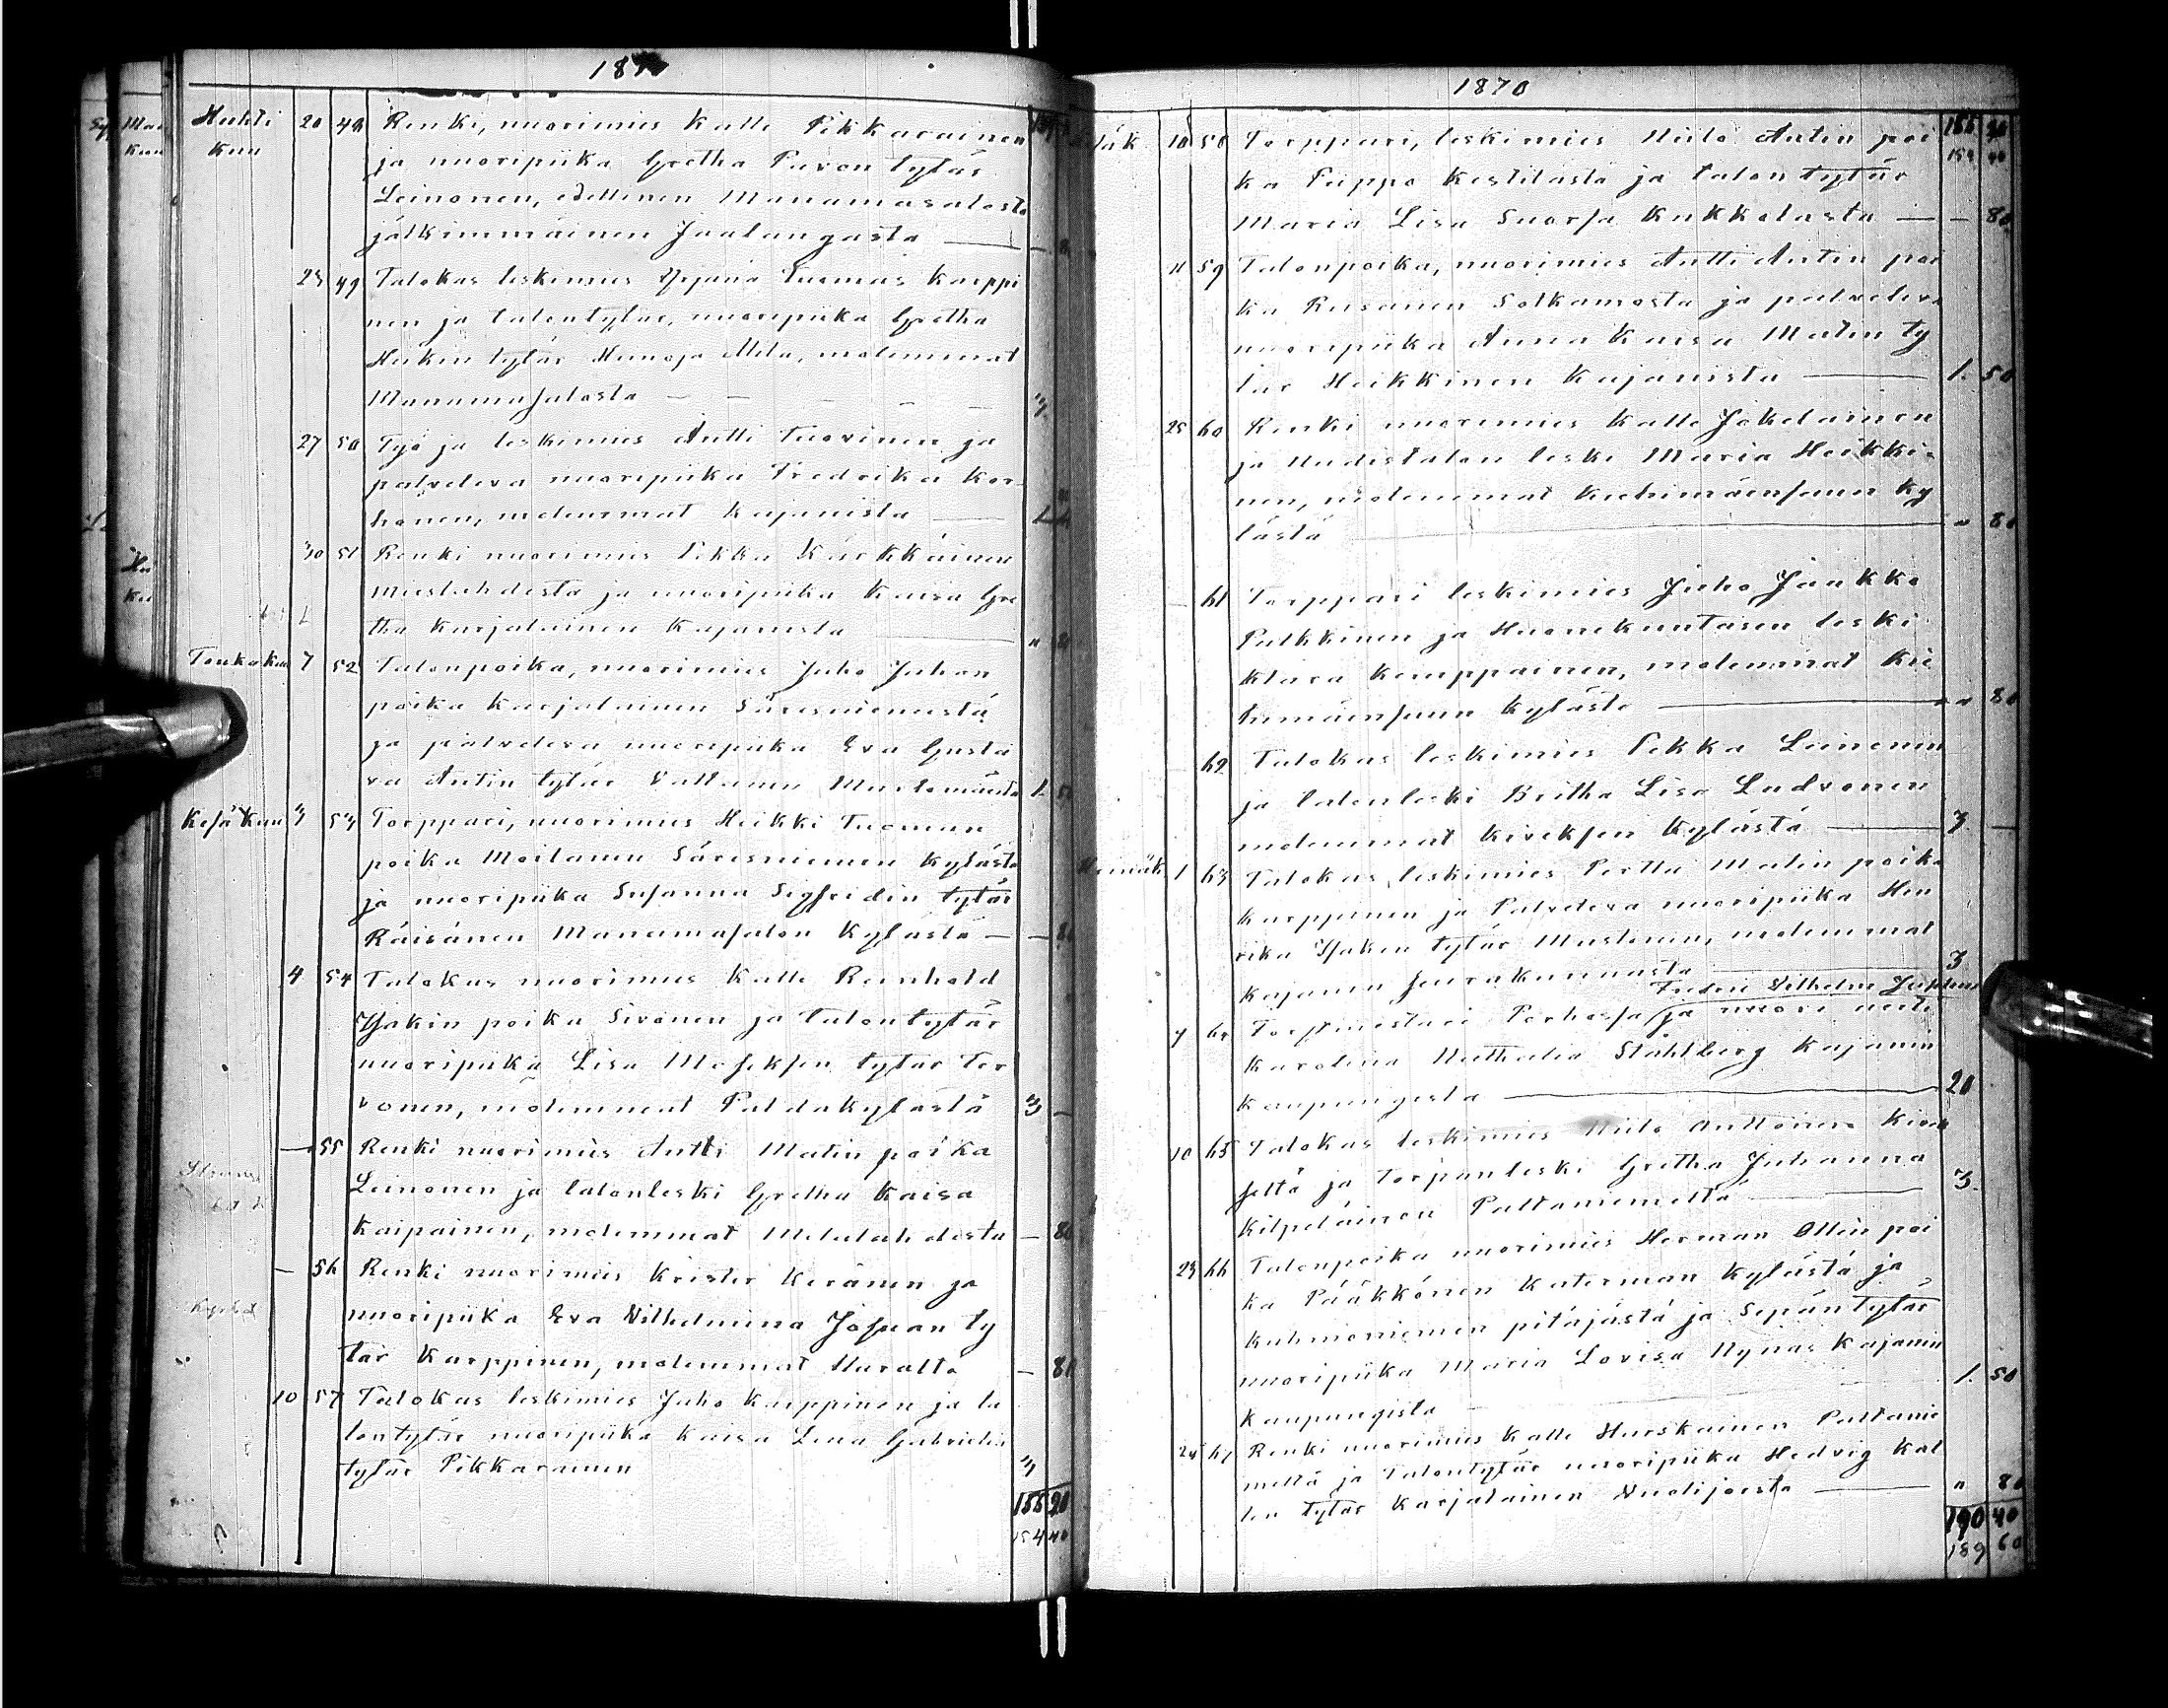 1870
Huhti 20 48 Renki, nuorimies Kalle Pikkarainen
kuu ja nuoripiika Gretha Pavon tytär
Leinonen, edellinen Manamasalosta
jälkimmäinen Jaalangasta —
23 49 Talokas leskimies Yrjänä Tuomas Karppi
nen ja talontytär, nuoripiika Gretha
Heikin tytär molemmat
Manamasalosta — — — — 3
27 50 Työ ja leskimies Antti Tuovinen ja
palveleva nuoripiika Fredrika Kor
honen, molemmat Kajanista —
30 51 Renki nuorimies Pekka Kärkkäinen
Mieslahdesta ja nuoripiika Kaisa Gre
tha Karjalainen Kajanista — "
Toukokuu 7 52 Talonpoika, nuorimies Juho Juhon
poika Karjalainen Säresniemestä
ja palveleva nuoripiika Eva Gusta
va Antin tytär 1. 50
Kesäkuu 3 53 Torppari, nuorimies Heikki Tuoman
poika Moilanen Säresniemen kylästä
ja nuoripiika Susanna Sigfridin tytär
Räisänen Manamasalon kylästä — —
4 54 Talokas nuorimies Kalle Reinhold
Isakin poika Sivonen ja talontytär
nuoripiika Lisa Moseksen tytär Ter
vonen, molemmat Paldakylästä 3 —
— 55 Renki nuorimies Antti Matin poika
Leinonen ja talonleski Gretha Kaisa
Kaipainen, molemmat Melalahdesta — 80
— 56 Renki nuorimies Krister Keränen ja
nuoripiika Eva Vilhelmina Josuan ty
tär Karppinen, molemmat — 80
10 57 Talokas leskimies Juho Karppinen ja ta
lontytär nuoripiika Kaisa Lena Gabrielin
tytär Pikkarainen 3
155 20
154 40
1870
10 58 Torppari, leskimies Niilo Antin poi
ka Piippo Kestilästä ja talon tytär
Maria Lisa Suorsa Kukkolasta — — 80
11 59 Talonpoika, nuorimies Antti Antin poi
ka Rusanen Sotkamosta ja palveleva
nuoripiika Anna Kaisa Matin ty
tär Heikkinen Kajanista — 1. 50
25 60 Renki nuorimies Kalle Jokelainen
ja Uudistalon leski Maria Heikki
nen, molemmat Kiehimäensuun ky
lästä — " 80
61 Torppari leskimies Juho Jaakko
Pulkkinen ja Huonekuntasen leski
Klara Kemppainen, molemmat Kie
himäensuun kylästä — " 80
62 Talokas leskimies Pekka Leinonen
ja talonleski Britha Lisa Ludvonen
molemmat Kiveksen kylästä — 3 —
Heinäk. 1 63 Talokas, leskimies Perttu Matin poika
Karppinen ja Palveleva nuoripiika Hen
rika Isakin tytär Mustonen, molemmat
Kajanin seurakunnasta — 3
7 64 Torpmestari Perhossa ja nuori neiti
Karolina Nathalia Ståhlberg Kajanin
Kaupungista — 20
10 65 Talokas leskimies Niilo Anttonen
ja torpanleski Gretha Johanna
Kilpeläinen Paltaniemeltä — 3.
23 66 Talonpoika nuorimies Herman Ollin poi
ka Pääkkönen Katerman kylästä ja
Kuhmoniemen pitäjästä ja Sepän tytär
nuoripiika Maria Lovisa Nynäs Kajanin
Kaupungista 1. 50
24 67 Renki nuorimies Kalle Hurskainen Paltanie
meltä ja talontytär nuoripiika Hedvig Kal
len tytär Karjalainen Vuolijoesta — " 80
190 40
189 60